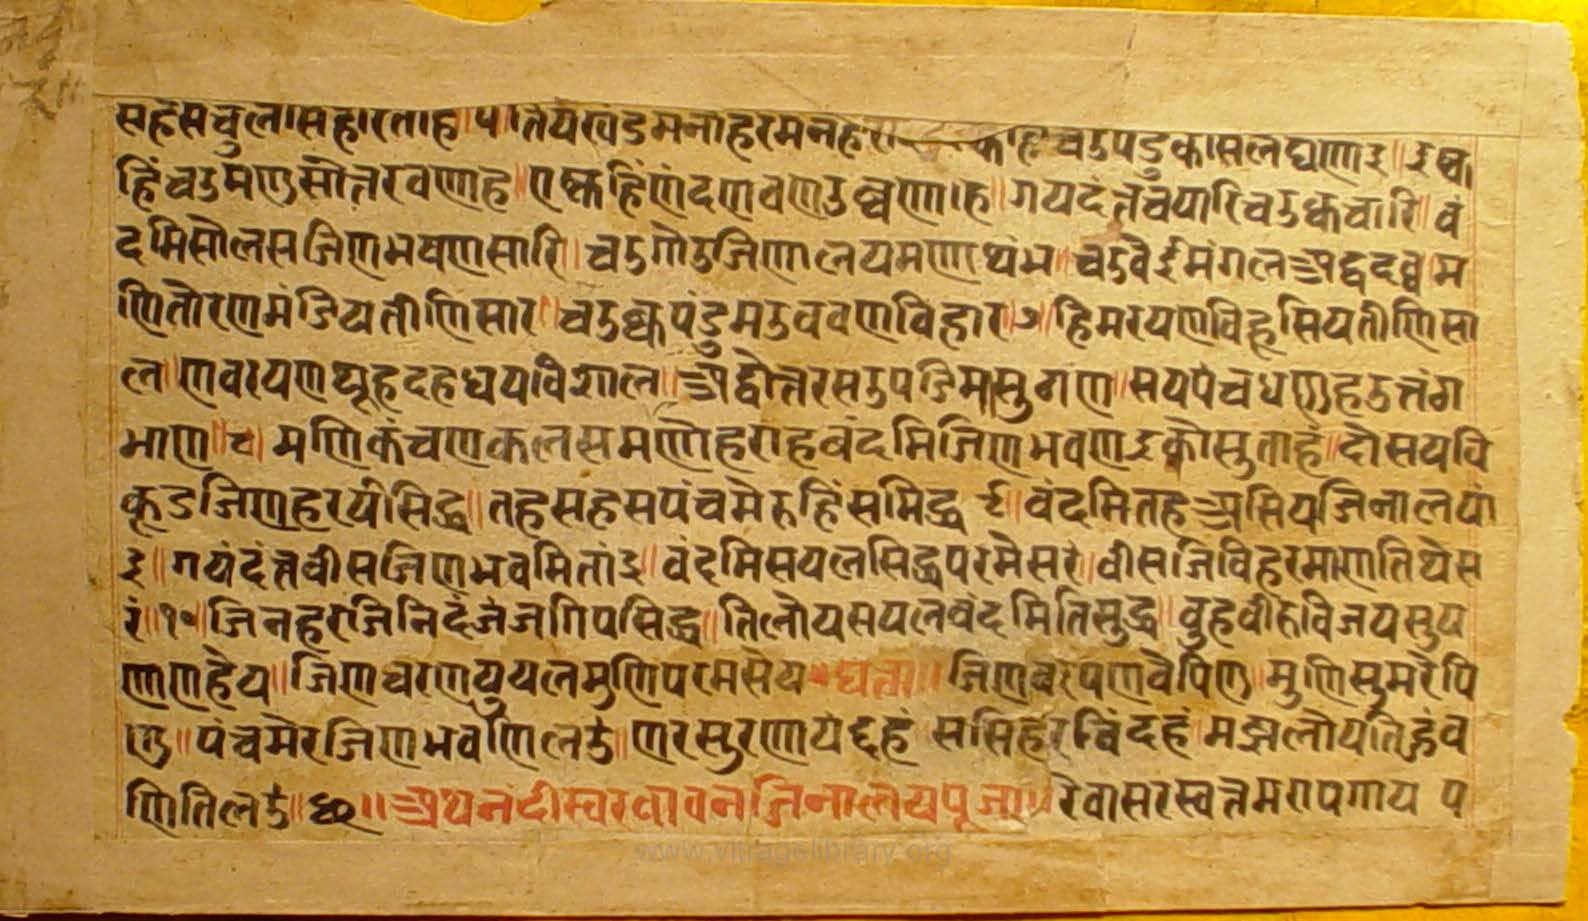 सहसचुलासहारताह॥५॥तियखंडमनोहरमनहरा चउपडुकासलघणइ॥इक्क
हिंचउमणुसोत्तरवणह॥एक्कहिंणंदणवणउच्चणाह॥गयदंतचयारिचउक्कवारि॥वं
दमिसोलसजिणभवणसारि॥चउगोउजिणालयमणाथंभ॥चउवैईमंगलअट्ठदव्व॥म
णितोरणमंडियतीणिसार॥चउक्कपंडुमउववणविहार॥७॥हिमरयणविहूसियतीणिसा
ल॥णवरयणथूहदहधयविशाल॥अट्ठोत्तरसउपडिमासुगण॥सयपंचधणुहउत्तंग
माण॥८॥मणिकंचणकलसमणोहराहवंदमिजिणभवणइकोसुताहं॥दोसयवि
कूडजिणहरयीसिद्ध॥तहसहसपंचमेरुहिंसमिद्ध॥९॥वंदमितहअसियजिनालयां
इ॥गयंदंतवीसजिणभवमितांइ॥वंदमिसयलसिद्धपरमेसरं॥वीसजिविहरमाणतिथेस
रं॥१०॥जिनहरजिनिदंजंजगिपसिद्ध॥तिलोयसयलवंदमितिसुद्ध॥वुहवीरुविजयसुय
णणहेय॥जिणचरणयुयलमुणिपरमसेय॥घत्ता॥जिणवरपणवेपिणु॥मुणिसुमरेपि
णु॥पंचमेरजिणभवणिलउं॥णरसुरणायंद्दहं ससिहरविंदहं॥मझलोयतिहुंव
णितिलउं॥छ॥॥अथनंदीस्वरबावनजिनालयपूजा॥रेवासरस्वत्तमरापगाय प
www.vitragelibrary.org